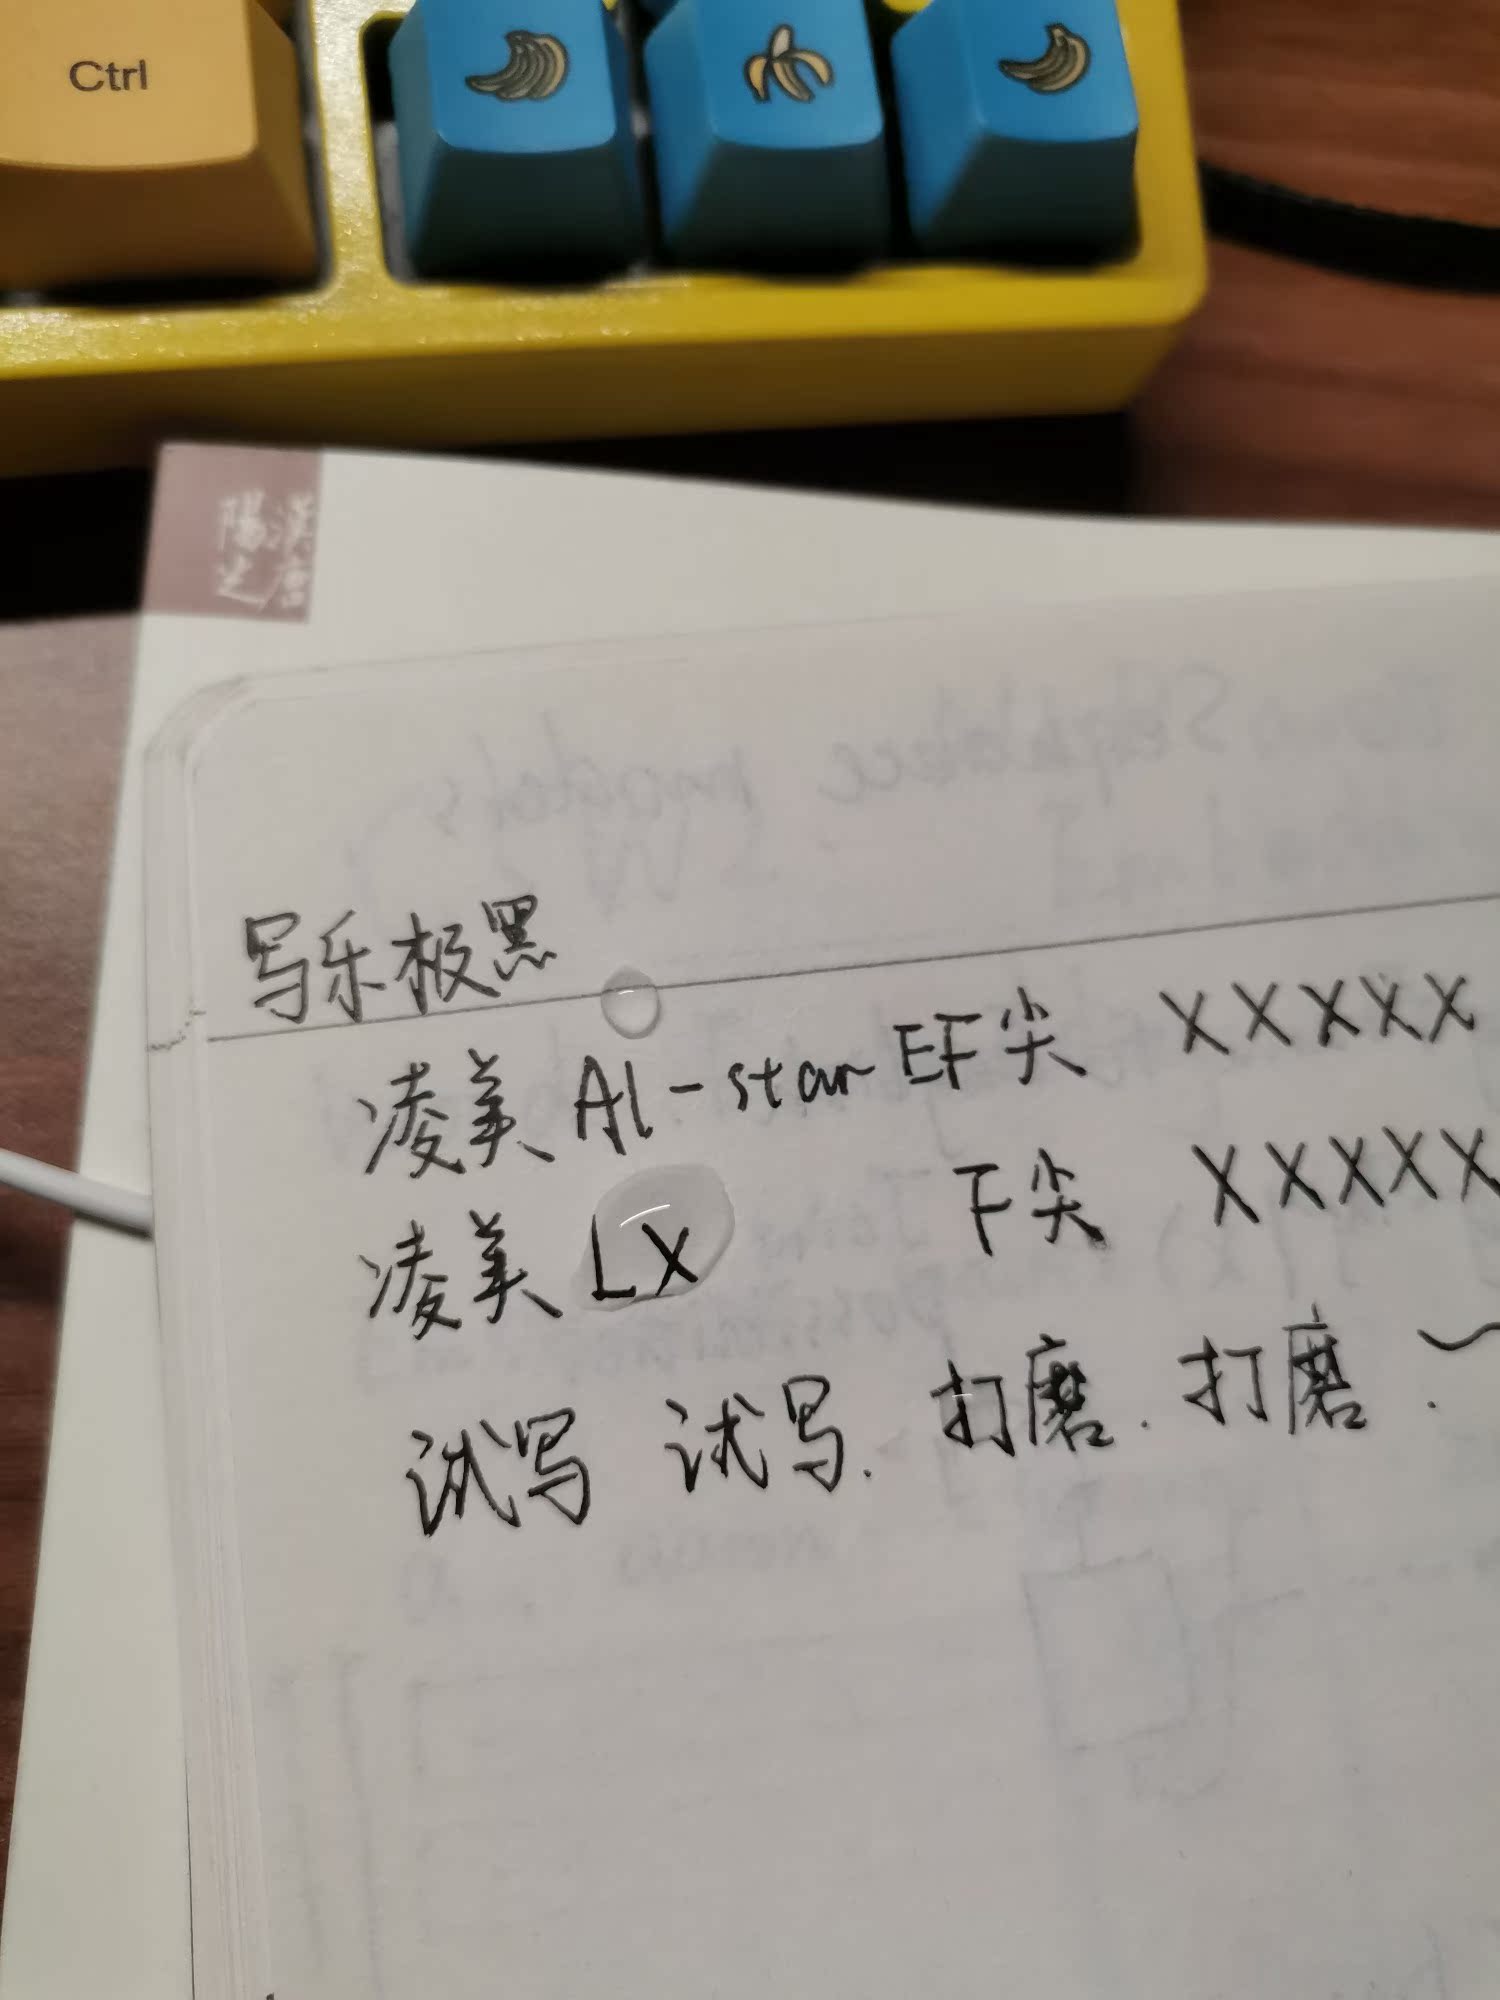 Ctrl
写乐极黑
凌美 Al-star EF尖 XXXXX
凌美 LX F尖 XXXXX
试写 试写. 打磨. 打磨.